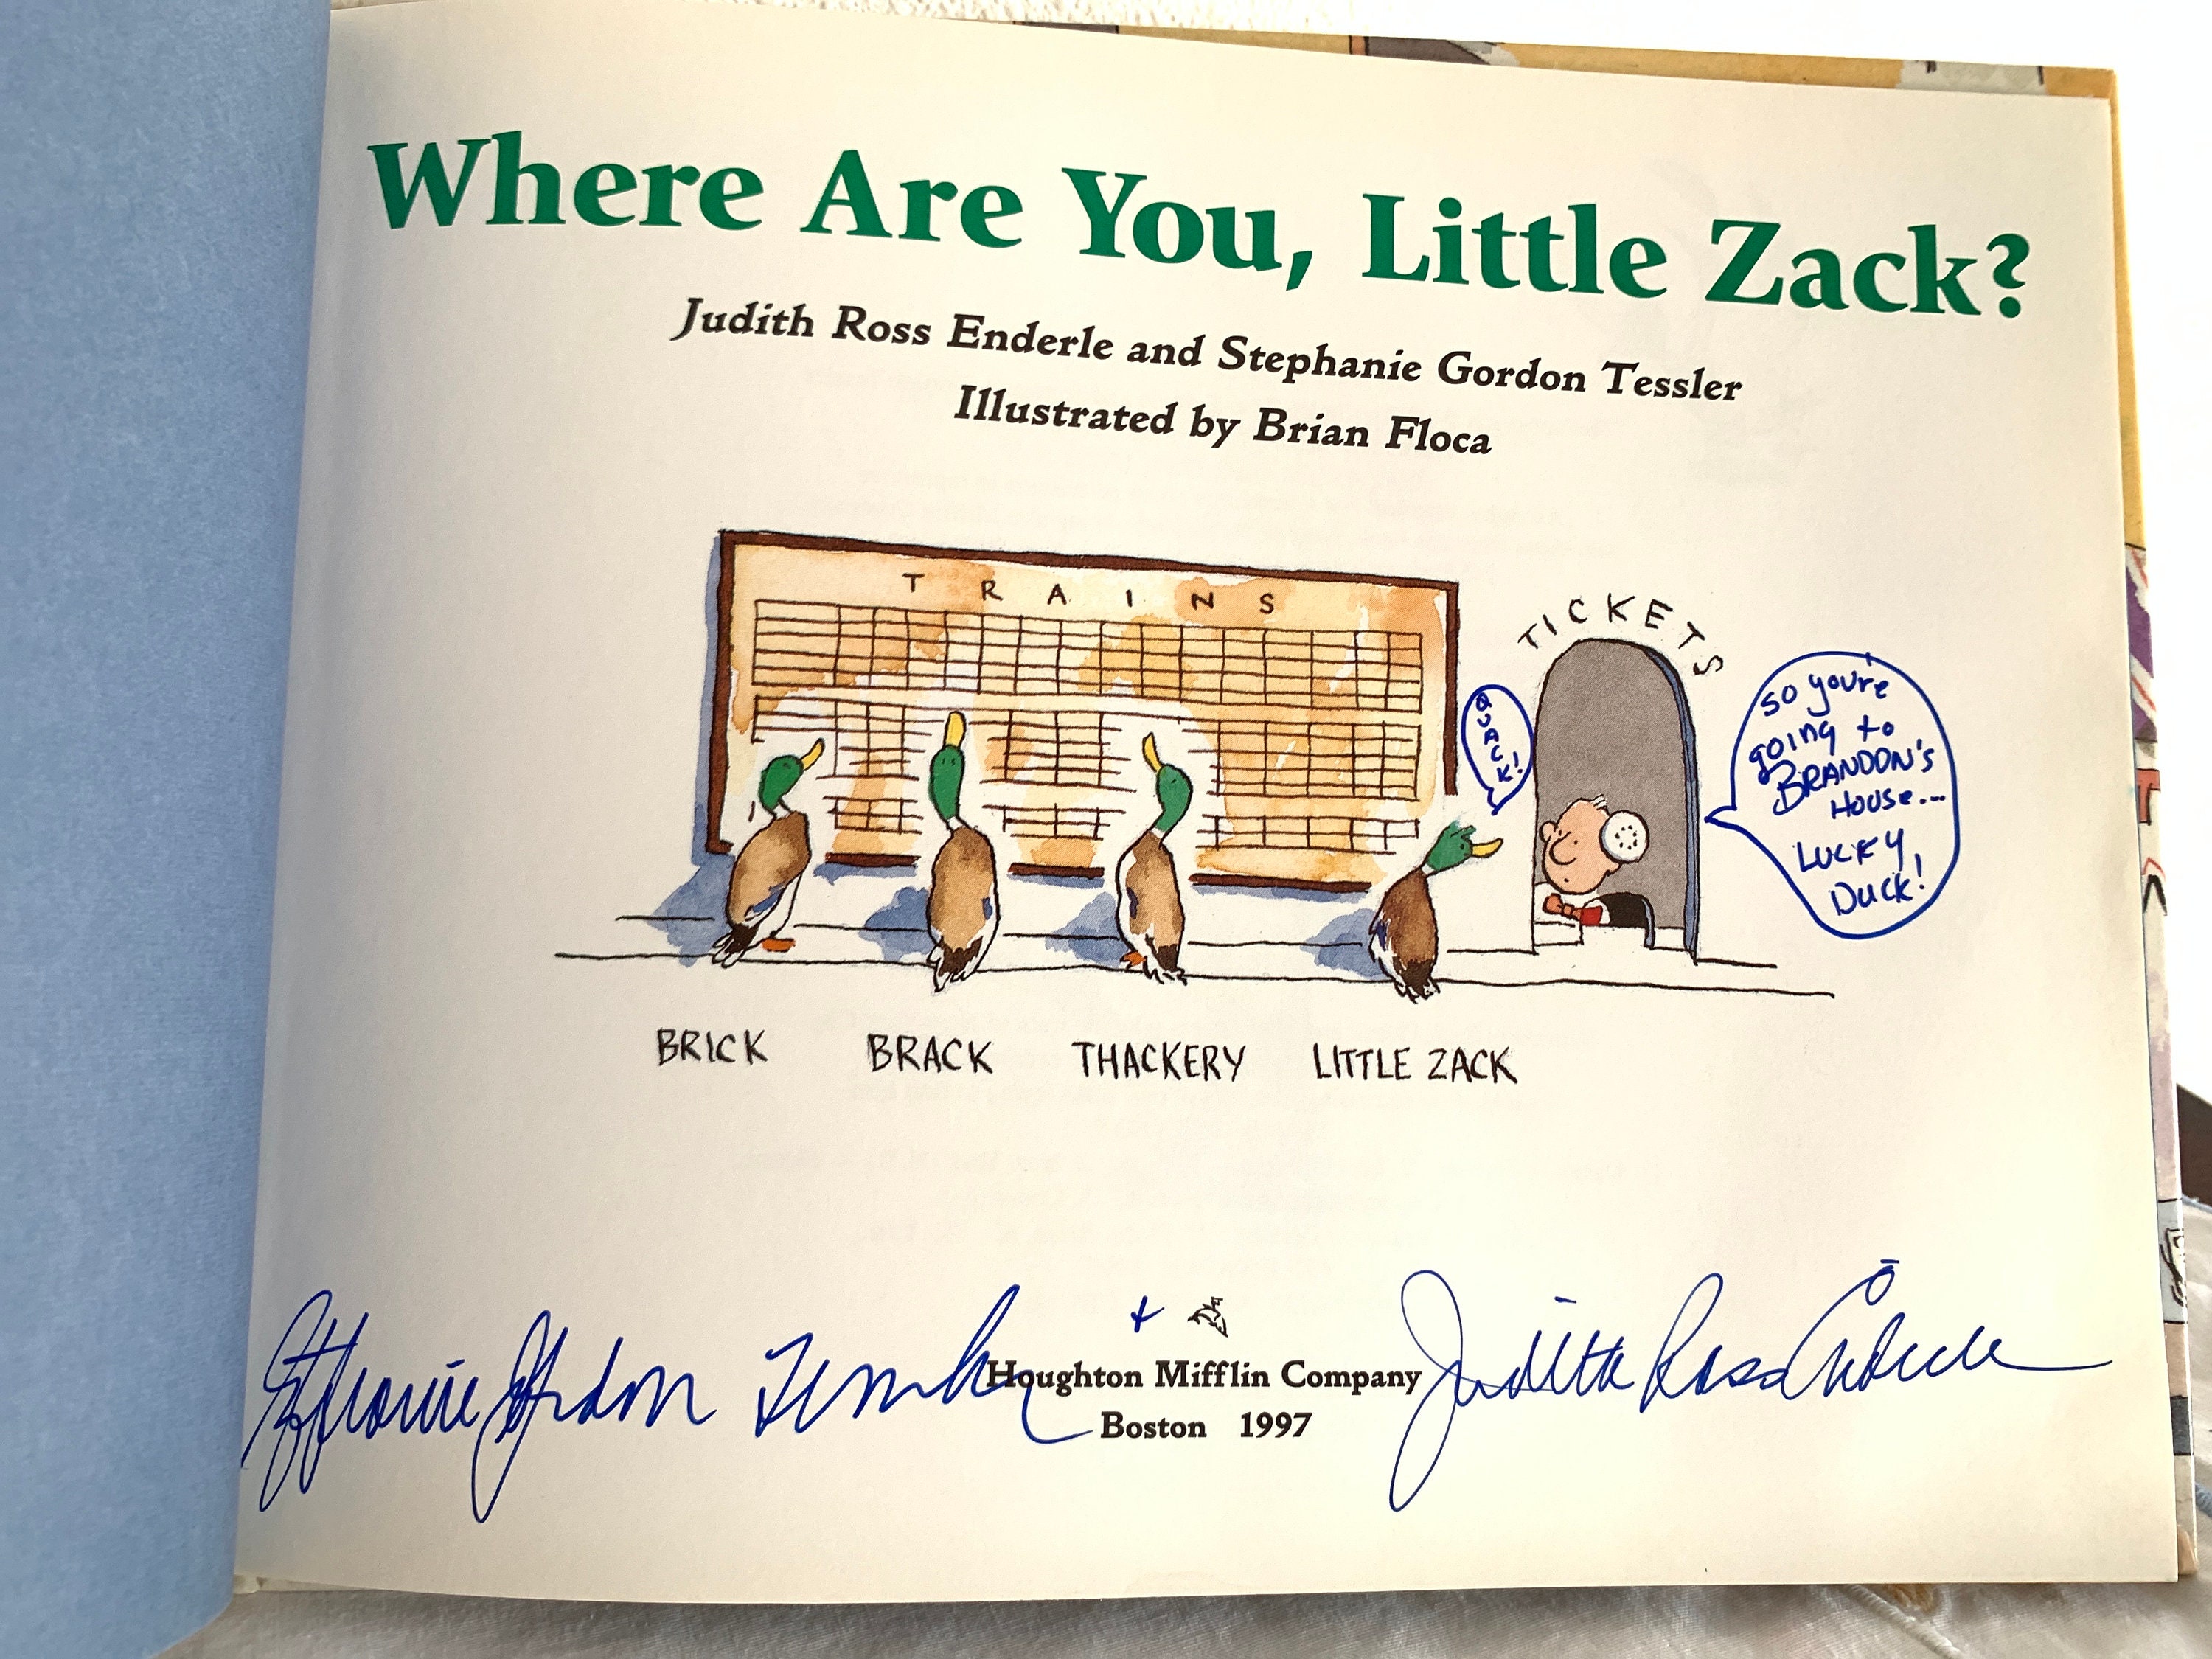 Where Are You, Little Zack?
Judith Ross Enderle and Stephanie Gordon Tessler
Illustrated by Brian Floca
TRAINS
TICKETS
QUACK!
So you're
going to
BRANDON'S
House...
LUCKY
Duck!
BRICK BRACK THACKERY LITTLE ZACK
Stephanie Gordon Tessler + Judith Ross Enderle
Houghton Mifflin Company
Boston 1997